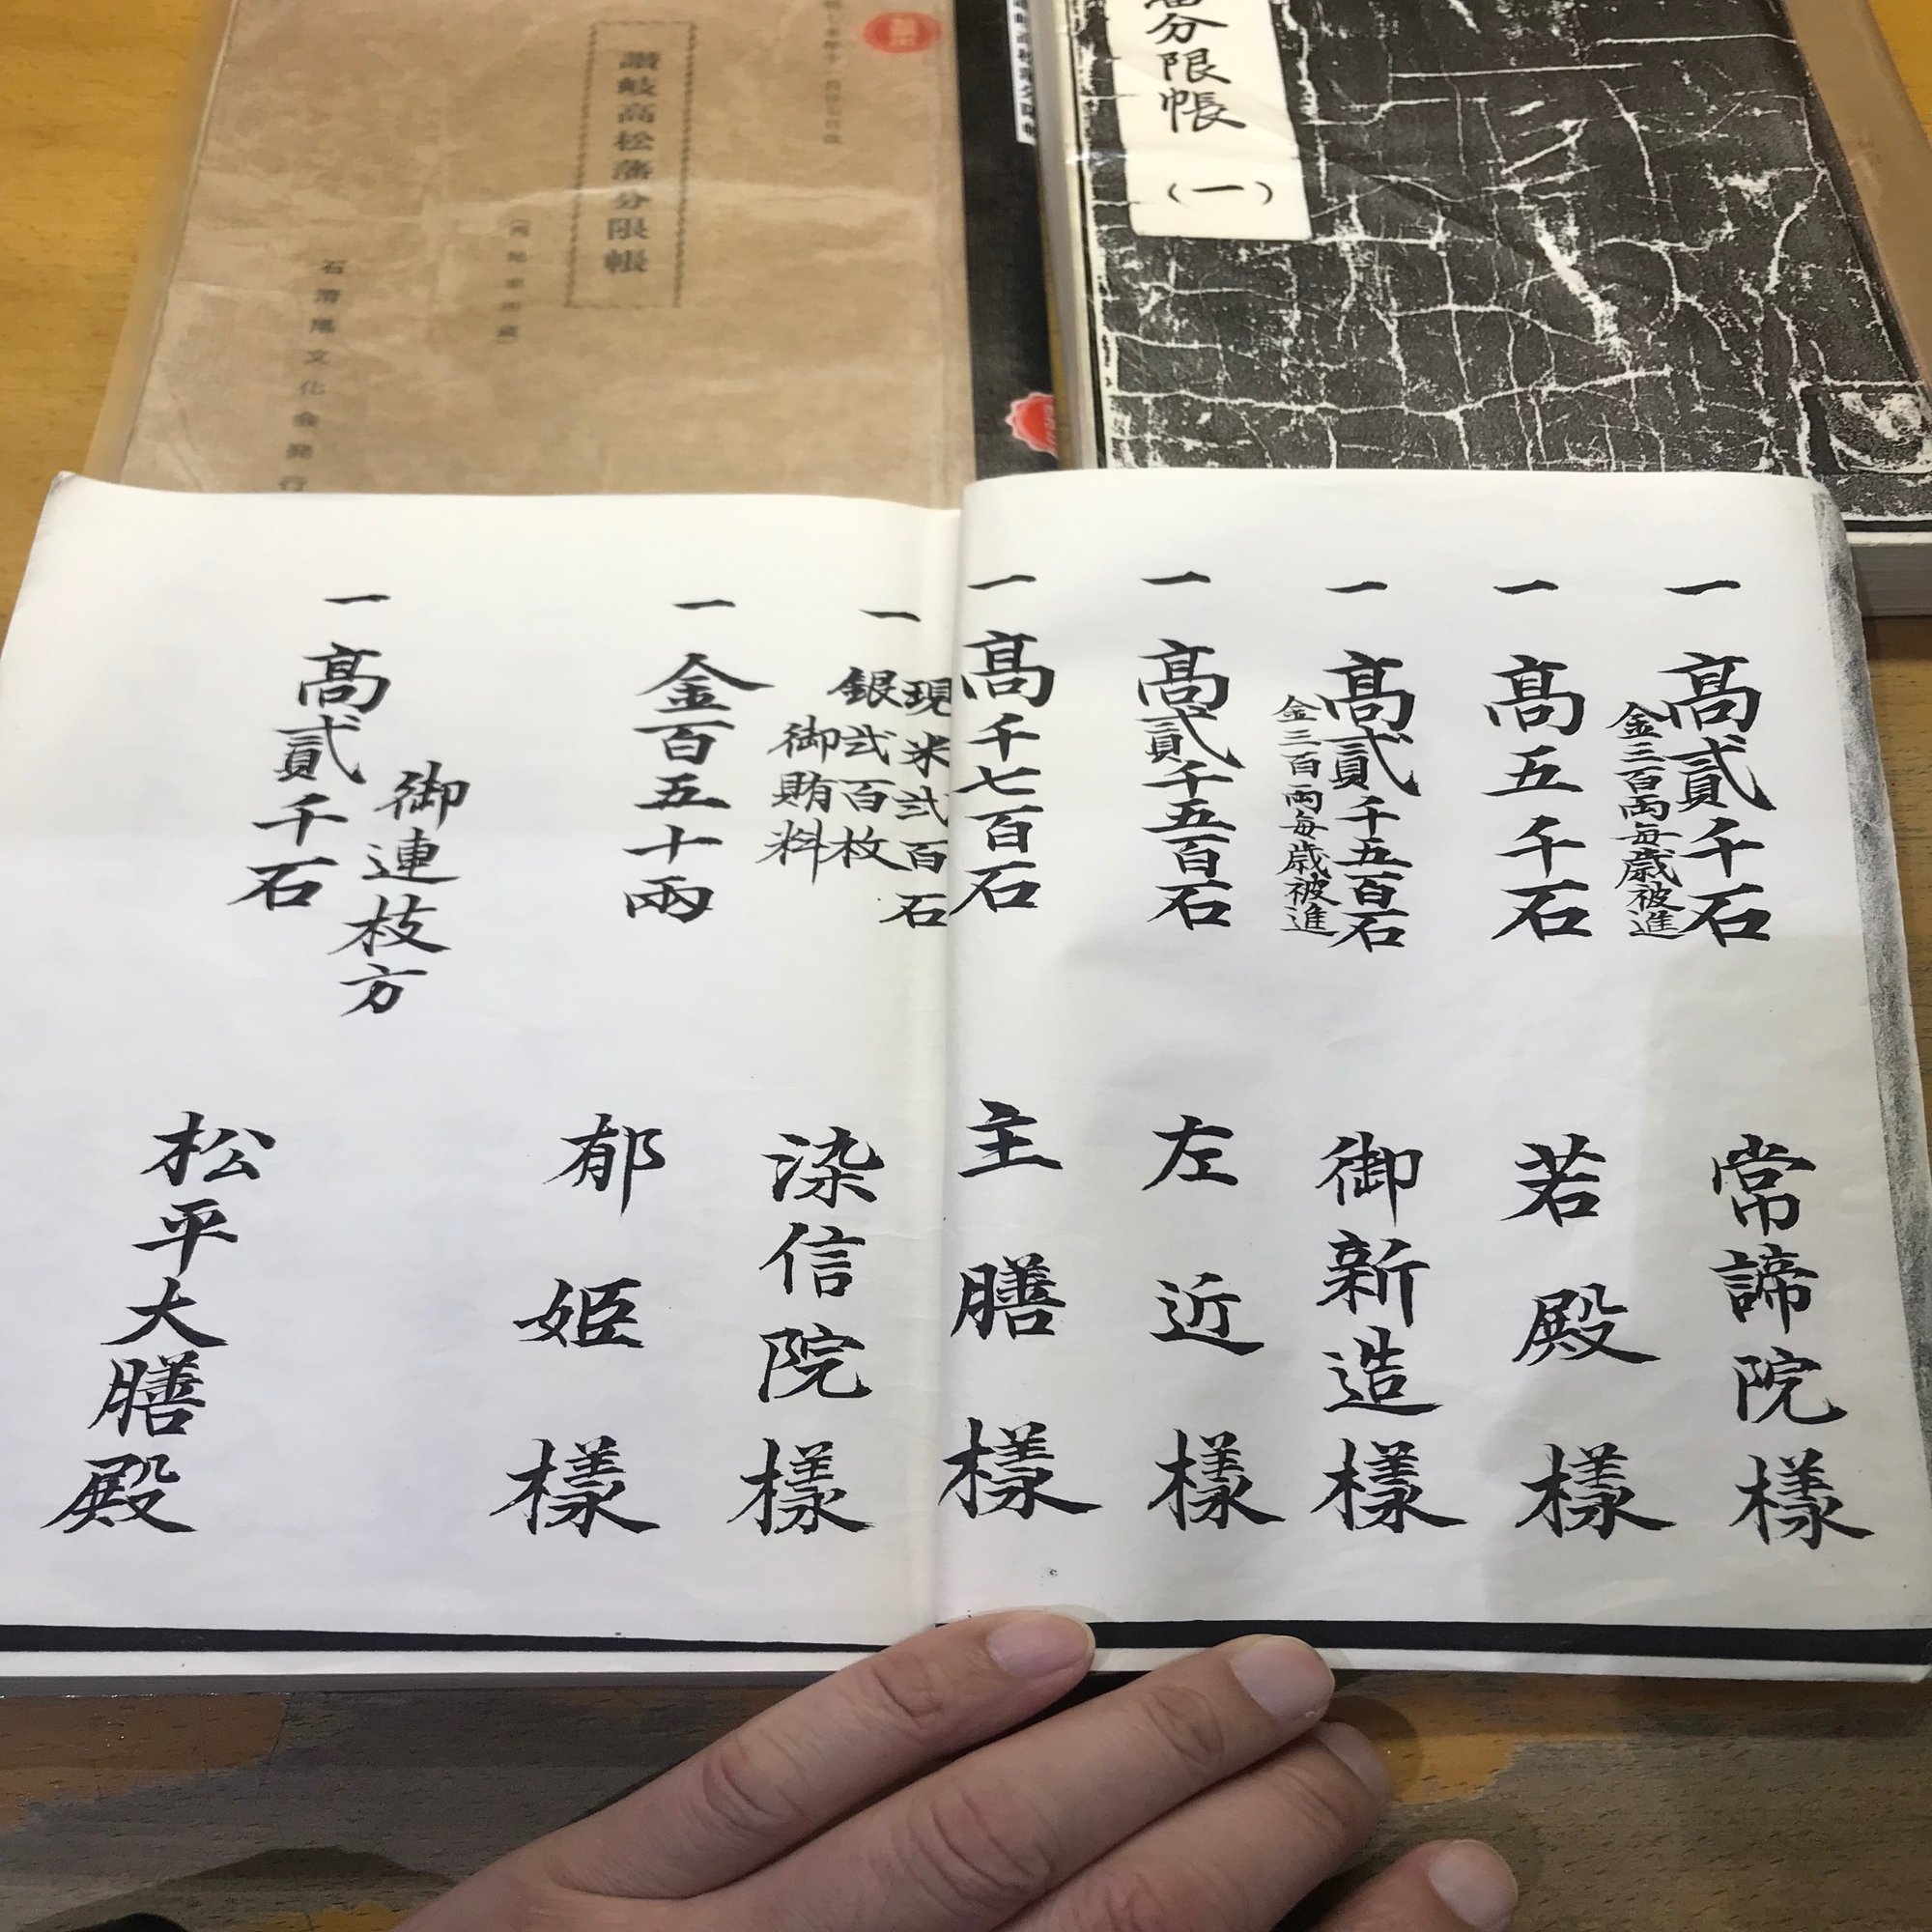 讃岐高松藩分限帳
石清尾文化会発行
藩分限帳
(一)
一 髙貳千石 常諦院様
金三百両毎歳被進
一 髙五千石 若殿様
一 髙貳千五百石 御新造様
金三百両毎歳被進
一 髙貳千五百石 左近様
一 髙千七百石 主膳様
現米弐百石
一 銀弐百枚 染信院様
御賄料
一 金百五十両 郁姫様
御連枝方
一 髙貳千石 松平大膳殿